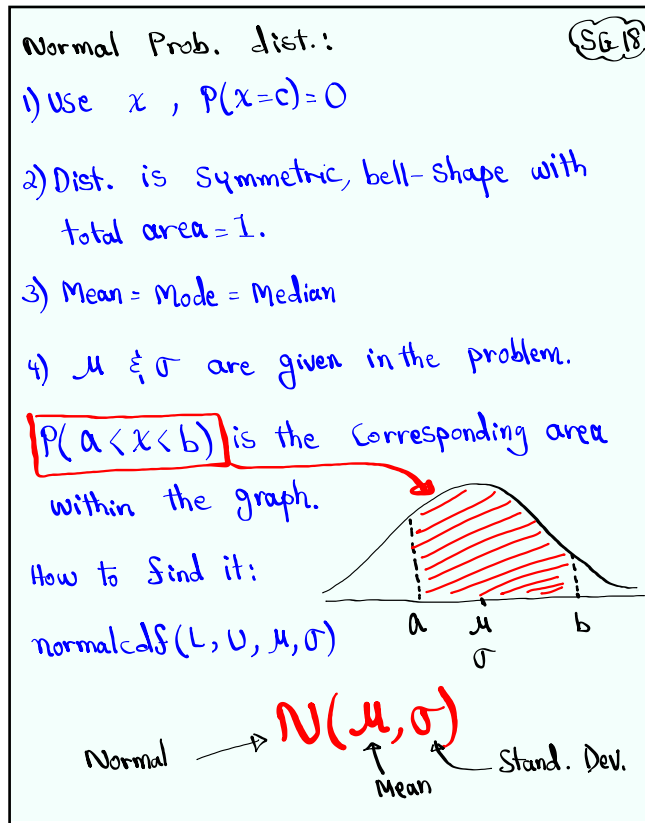 Normal Prob. dist.:
SG 18
1) Use x, P(x=c)=0
2) Dist. is symmetric, bell-shape with
total area=1.
3) Mean = Mode = Median
4) μ & σ are given in the problem.
P(a<x<b) is the corresponding area
within the graph.
How to find it:
a μ b
σ
normalcdf(L, U, μ, σ)
N(μ,σ)
Normal
Mean
Stand. Dev.